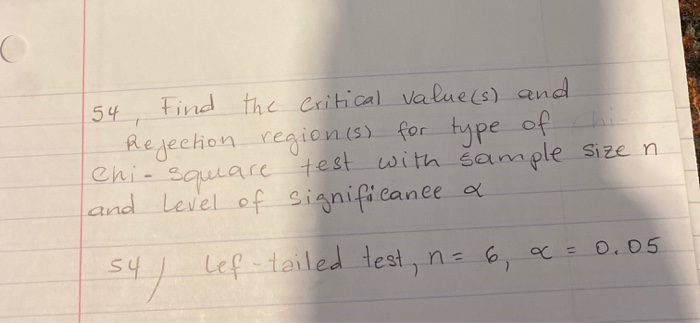 54, Find the critical value(s) and
Rejection region(s) for type of
Chi-square test with sample size n
and Level of significance α
54) Lef-tailed test, n = 6, α = 0.05